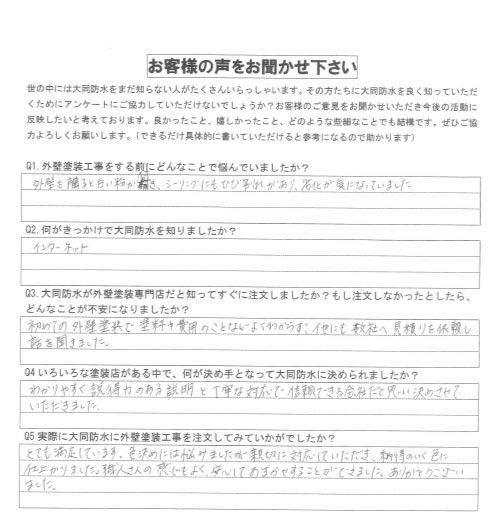 お客様の声をお聞かせ下さい
世の中には大同防水をまだ知らない人がたくさんいらっしゃいます。その方たちに大同防水を良く知っていただ
くためにアンケートにご協力していただけないでしょうか？お客様のご意見をお聞かせいただき今後の活動に
反映したいと考えております。良かったこと、嬉しかったこと、どのような些細なことでも結構です。ぜひご協
力よろしくお願いします。（できるだけ具体的に書いていただけると参考になるので助かります）
Q1. 外壁塗装工事をする前にどんなことで悩んでいましたか？
外壁を触ると白い粉が付き、シーリングにもひび割れがあり、劣化が気になっていました
Q2. 何がきっかけで大同防水を知りましたか？
インターネット
Q3. 大同防水が外壁塗装専門店だと知ってすぐに注文しましたか？もし注文しなかったとしたら、
どんなことが不安になりましたか？
初めての外壁塗装で塗料や費用のことなどよくわからず、他にも数社へ見積りを依頼し
話を聞きました。
Q4 いろいろな塗装店がある中で、何が決め手となって大同防水に決められましたか？
わかりやすく説得力のある説明と丁寧な対応で信頼できる会社だと思い決めさせて
いただきました。
Q5 実際に大同防水に外壁塗装工事を注文してみていかがでしたか？
とても満足しています。色決めには悩みましたが親切に対応していただき、納得のいく色に
仕上がりました。職人さんの感じもよく、安心しておまかせすることができました。ありがとうござい
ました。